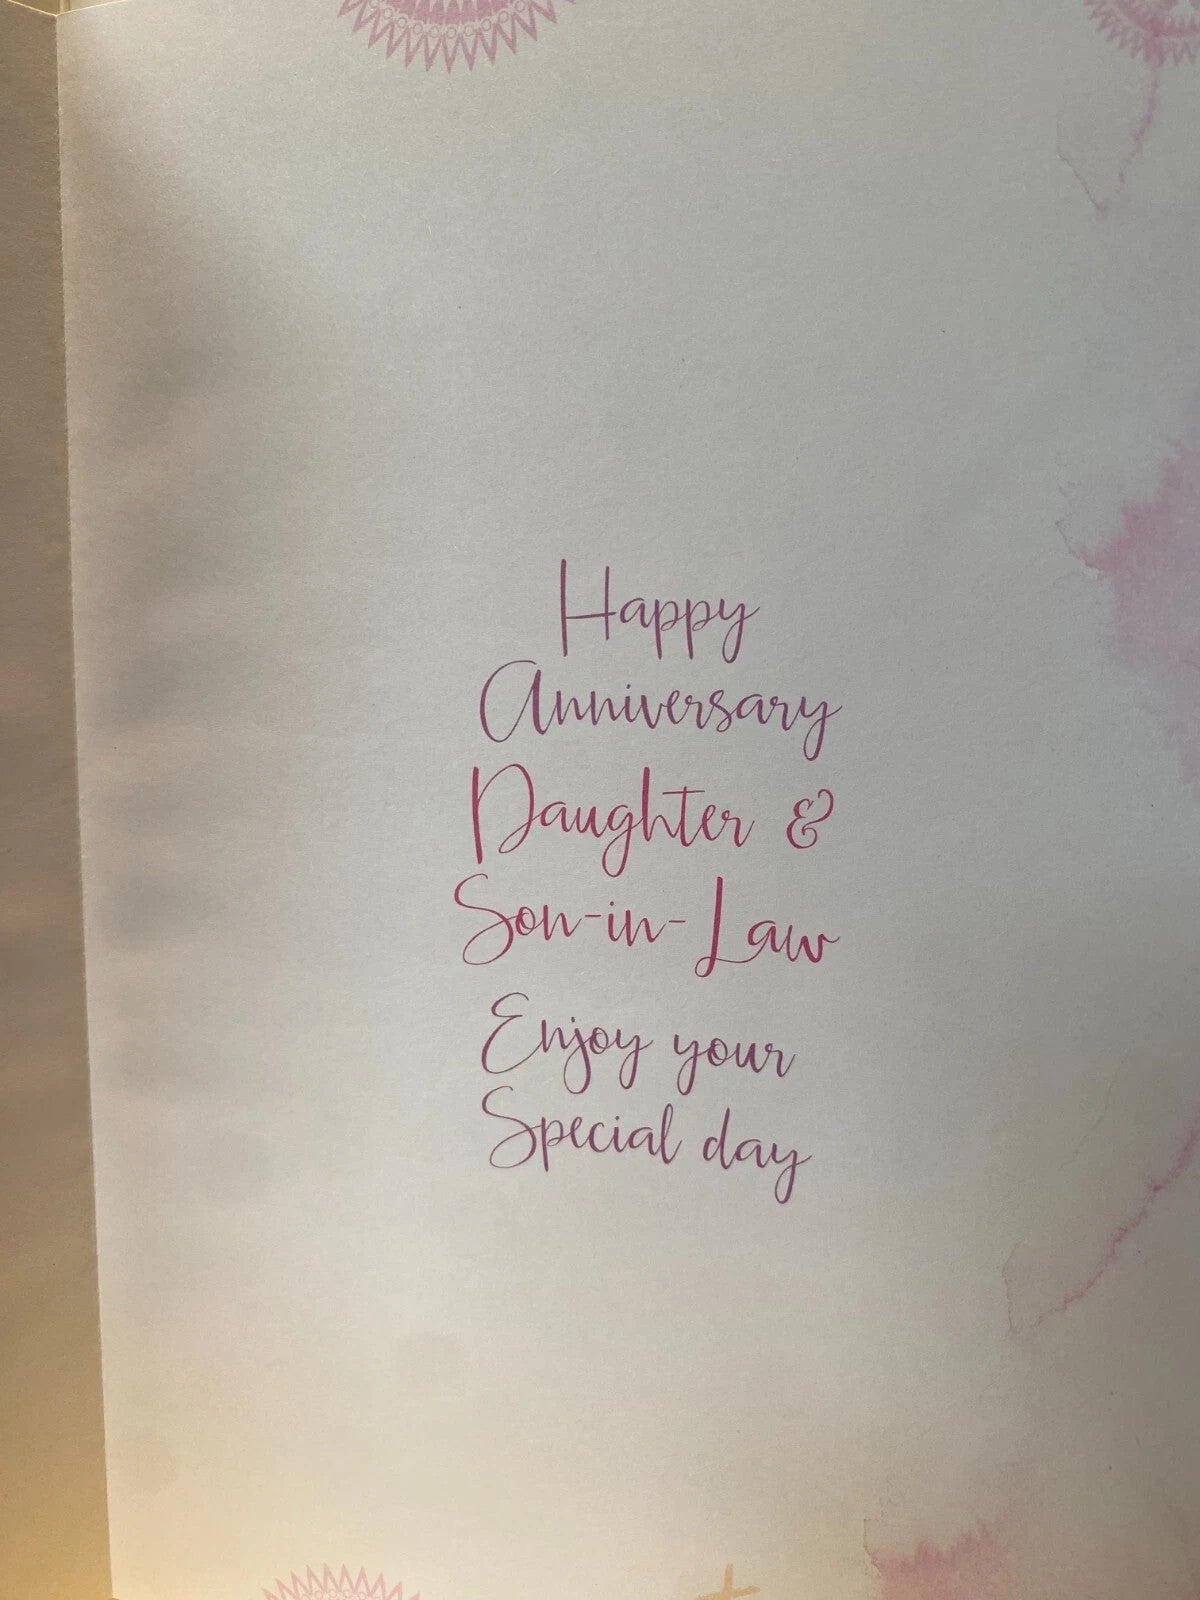 Happy
Anniversary
Daughter &
Son-in-Law
Enjoy your
Special day